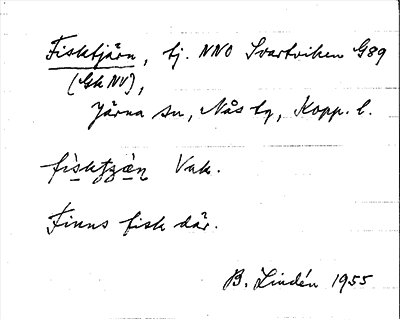 Fisktjärn, tj. NNO Svartviken G89
(Gk NV),
Järna sn, Nås tg, Kopp. l.
Vak.
Finns fisk där.
B. Lindén 1955